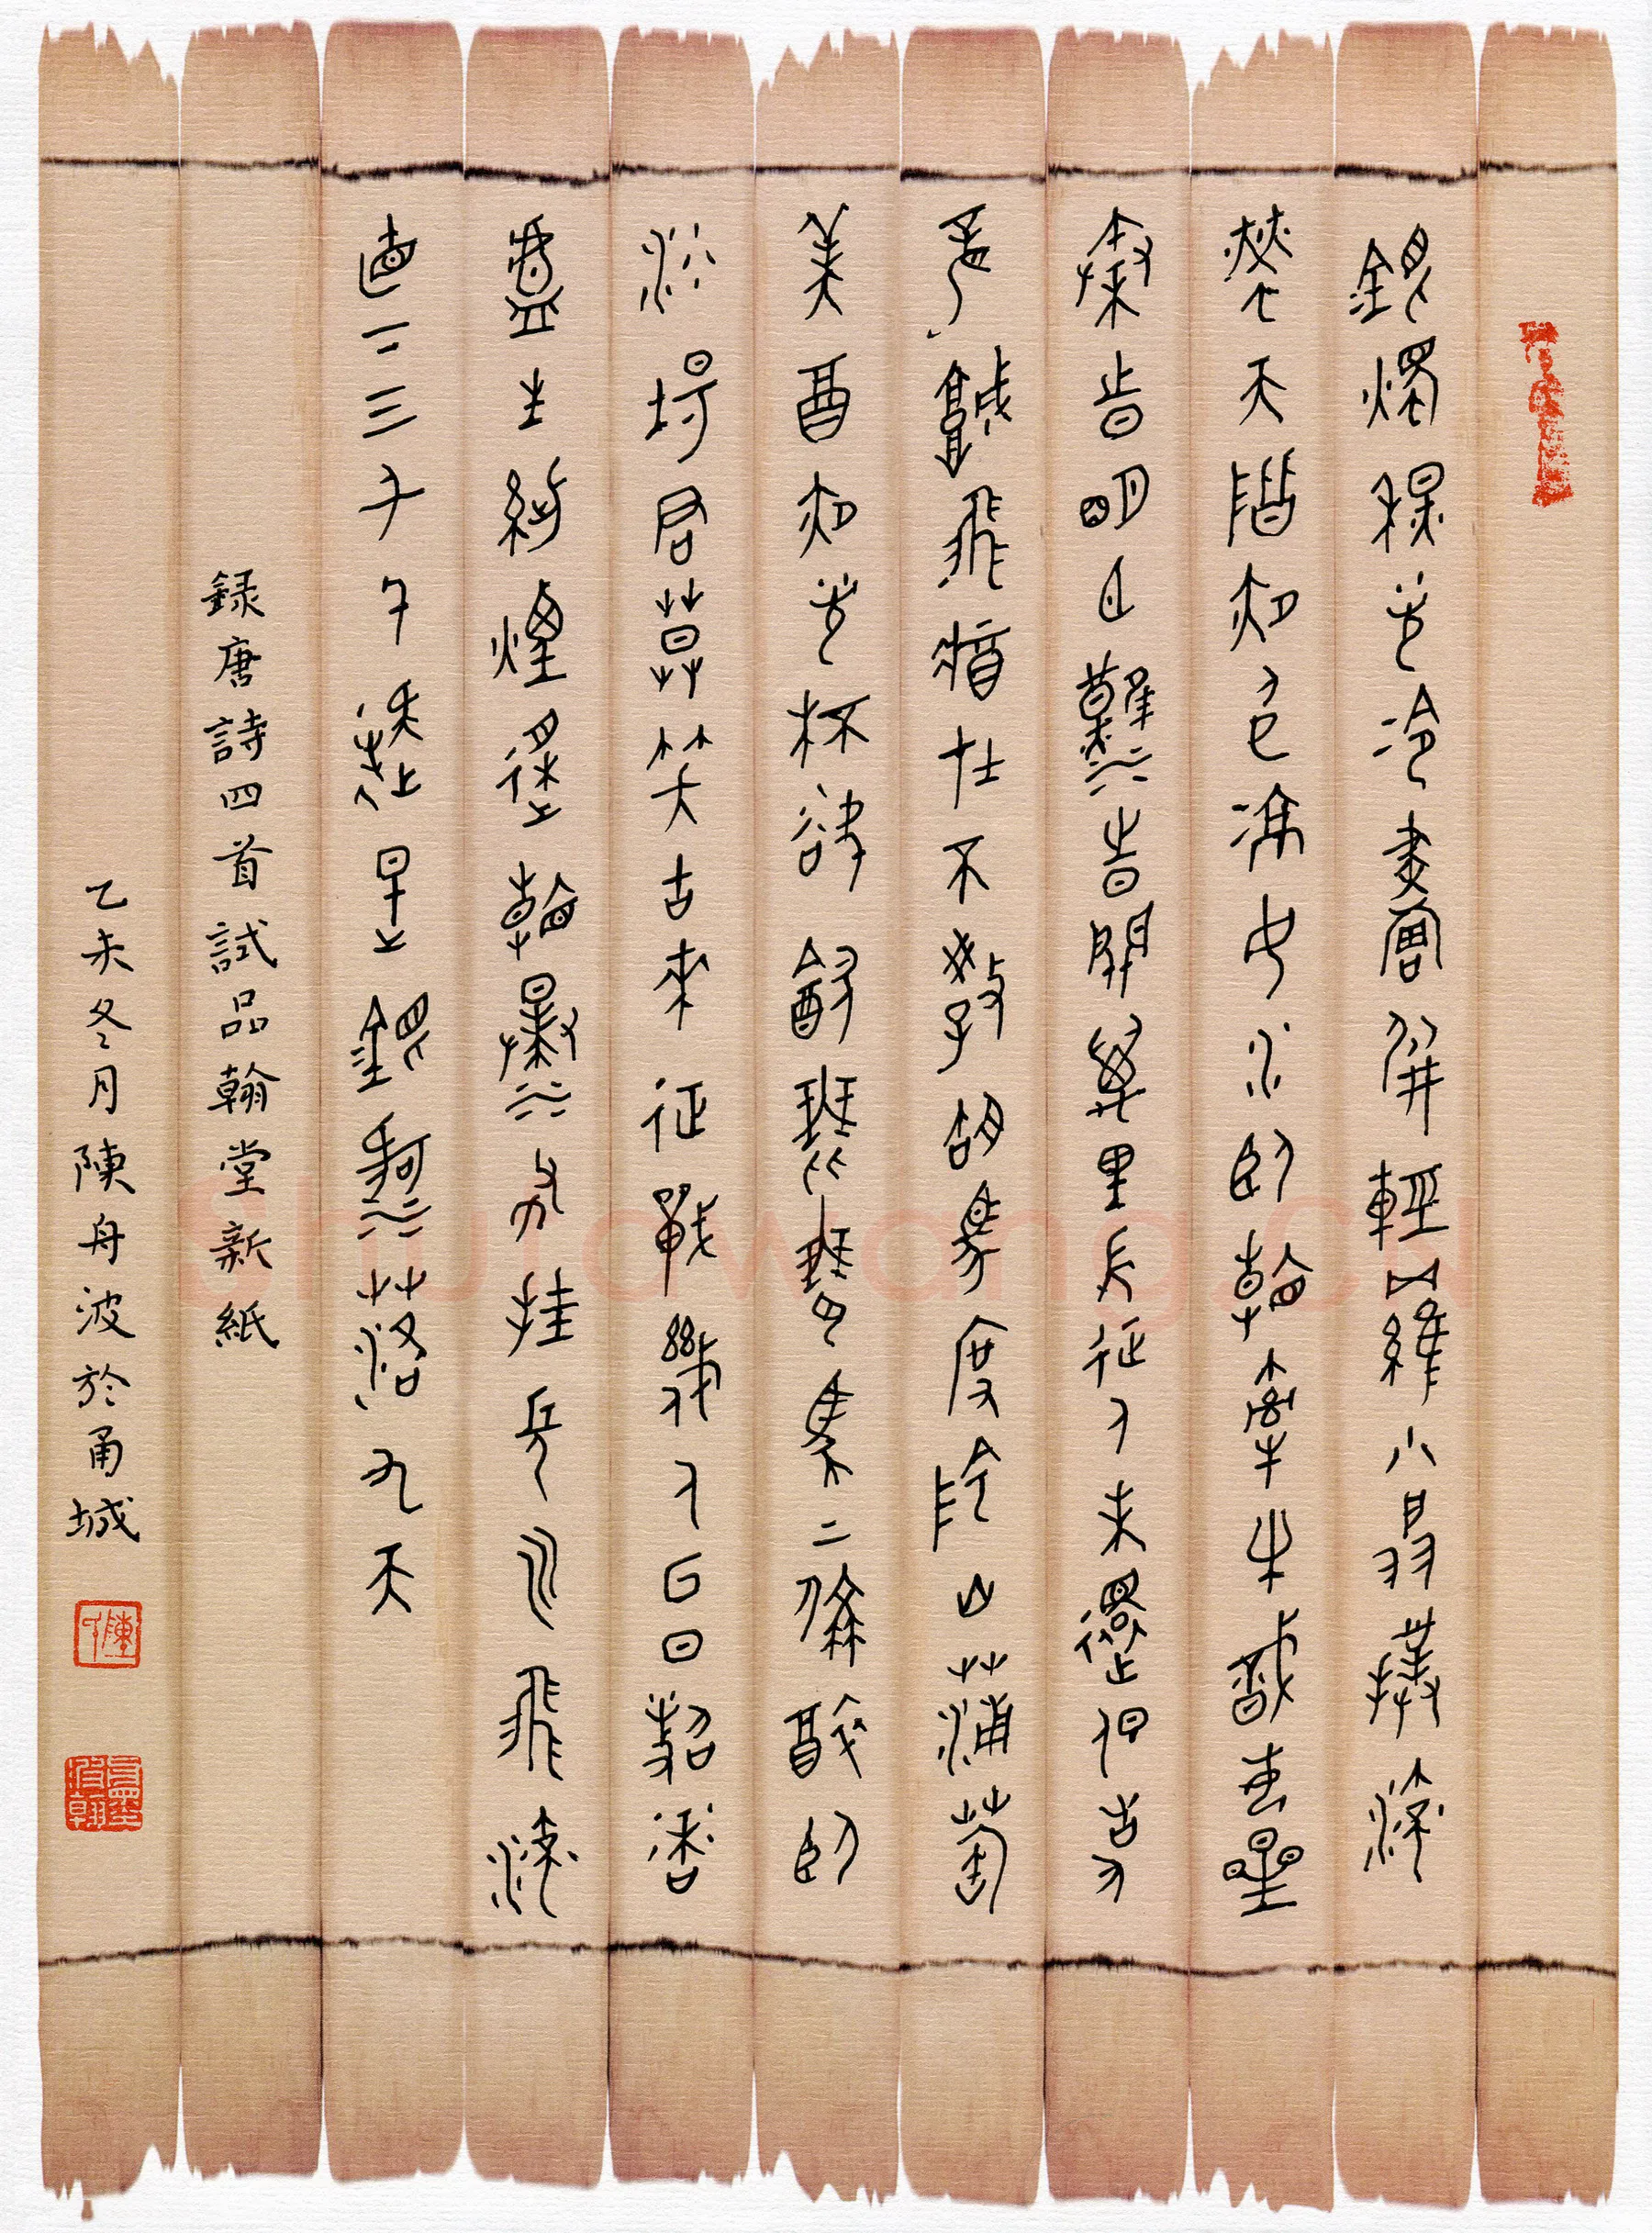 銀燭秋光冷畫屏輕羅小扇撲流
螢天階夜色涼如水卧看牽牛織女星
秦時明月漢時關萬里長征人未還但使
龍城飛將在不教胡馬度陰山葡萄
美酒夜光杯欲飲琵琶馬上催醉卧
沙場君莫笑古來征戰幾人回日照香
爐生紫煙遙看瀑布挂前川飛流
直下三千尺疑是銀河落九天
録唐詩四首試品翰堂新紙
乙未冬月陳舟波於甬城